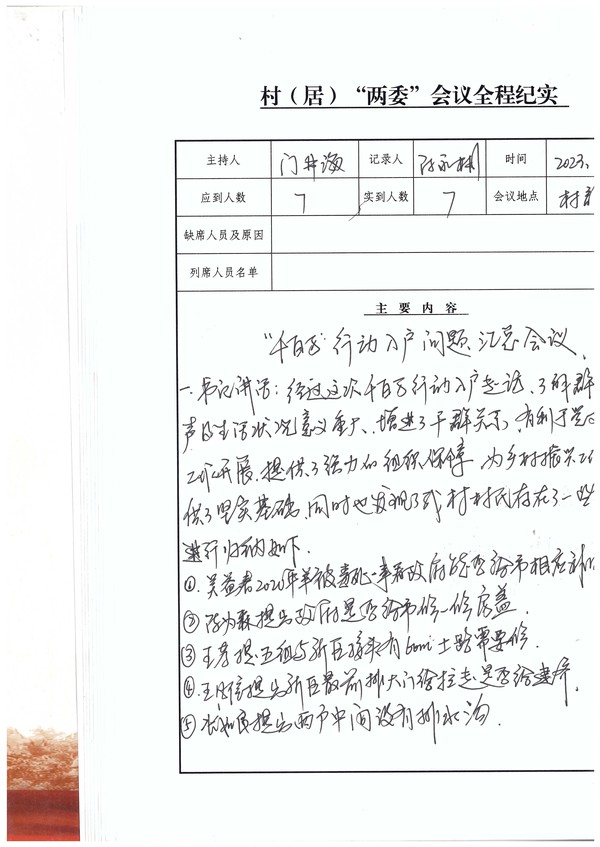 村（居）“两委”会议全程纪实
主持人 门井海 记录人 陈永树 时间 2023.
应到人数 7 实到人数 7 会议地点 村
缺席人员及原因
列席人员名单
主要内容
“千百万”行动入户问题汇总会议
一.书记讲话：经过这次千百万行动入户走访、了解群
声的生活状况意义重大、增进了干群关系，有利于党
工作开展，提供了强力的组织保障，为乡村振兴工
供了坚实基础，同时也发现了我村村民存在了一些
进行归纳如下.
①、吴益君2020年羊被毒死一事看政府能否给予相应补
②陈为森提出政府是否给予修一修房盖.
③王君提五组与新区接头有60m土路需要修.
④.王 提出新区最前排大门给拉走是否给建
⑤ 民提出两户中间没有排水沟.